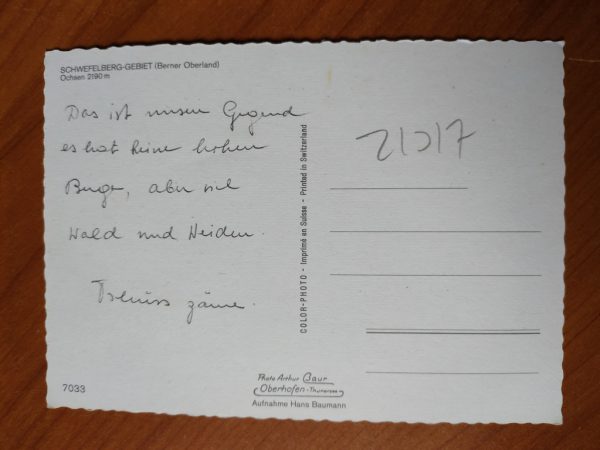 SCHWEFELBERG-GEBIET (Berner Oberland)
Ochsen 2190 m
Das ist unsere Gegend
es hat keine hohen
Berge, aber viel
Wald und Weiden.
Tschüss zäme.
COLOR-PHOTO - Imprimé en Suisse - Printed in Switzerland
7033
Photo Arthur Baur
Oberhofen-Thunersee
Aufnahme Hans Baumann